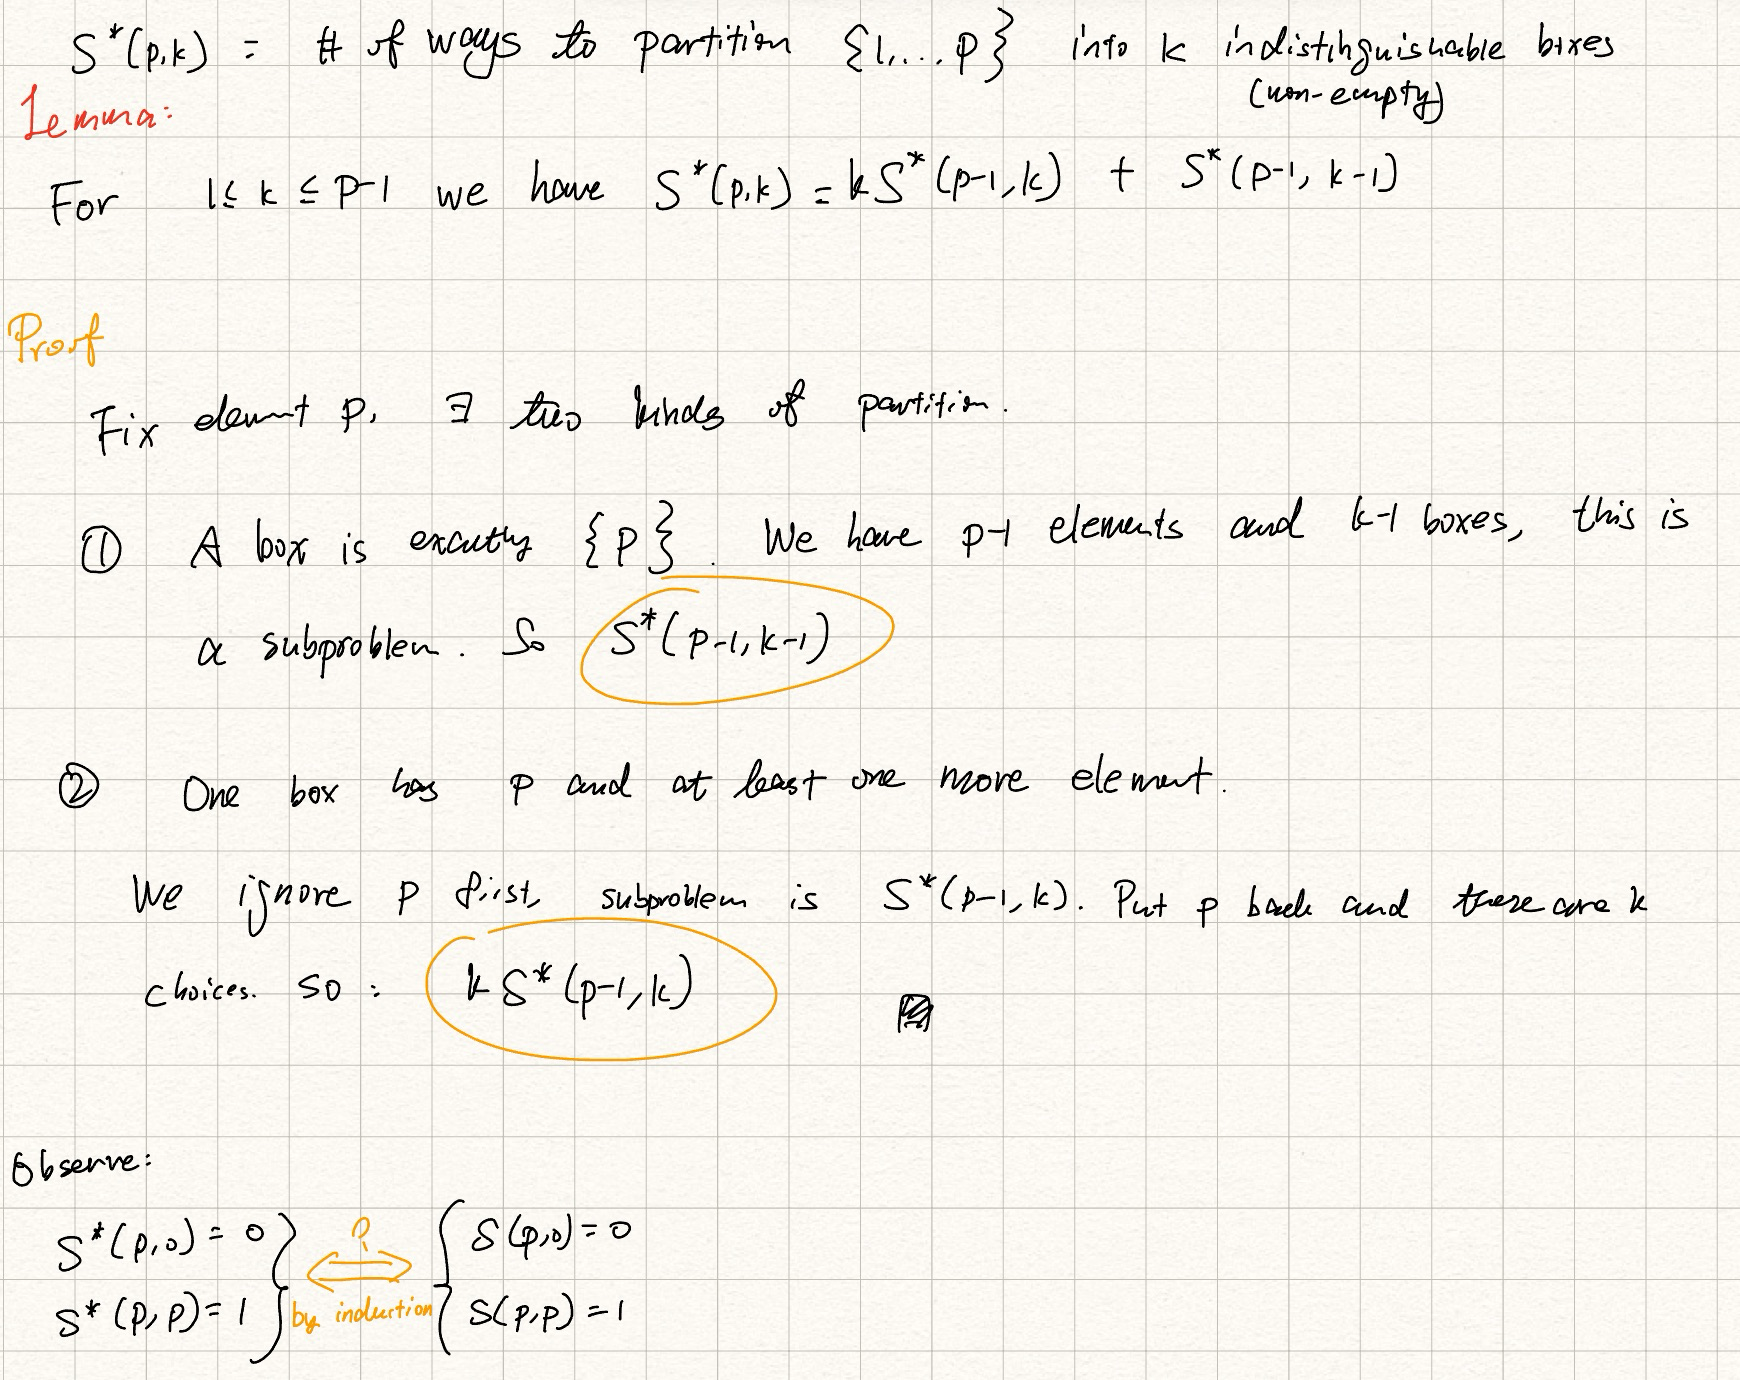 S*(p,k) = # of ways to partition {1,...p} into k indistinguishable boxes
(non-empty)
Lemma:
For 1 ≤ k ≤ p-1 we have S*(p,k) = kS*(p-1,k) + S*(p-1, k-1)
Proof
Fix element p, ∃ two kinds of partition.
① A box is exactly {p}. We have p-1 elements and k-1 boxes, this is
a subproblem. So S*(p-1,k-1)
② One box has p and at least one more element.
We ignore p first, subproblem is S*(p-1,k). Put p back and there are k
choices. so: kS*(p-1,k)
Observe:
S*(p,0) = 0 } ? { S(p,0) = 0
S*(p,p) = 1 } by induction { S(p,p) = 1